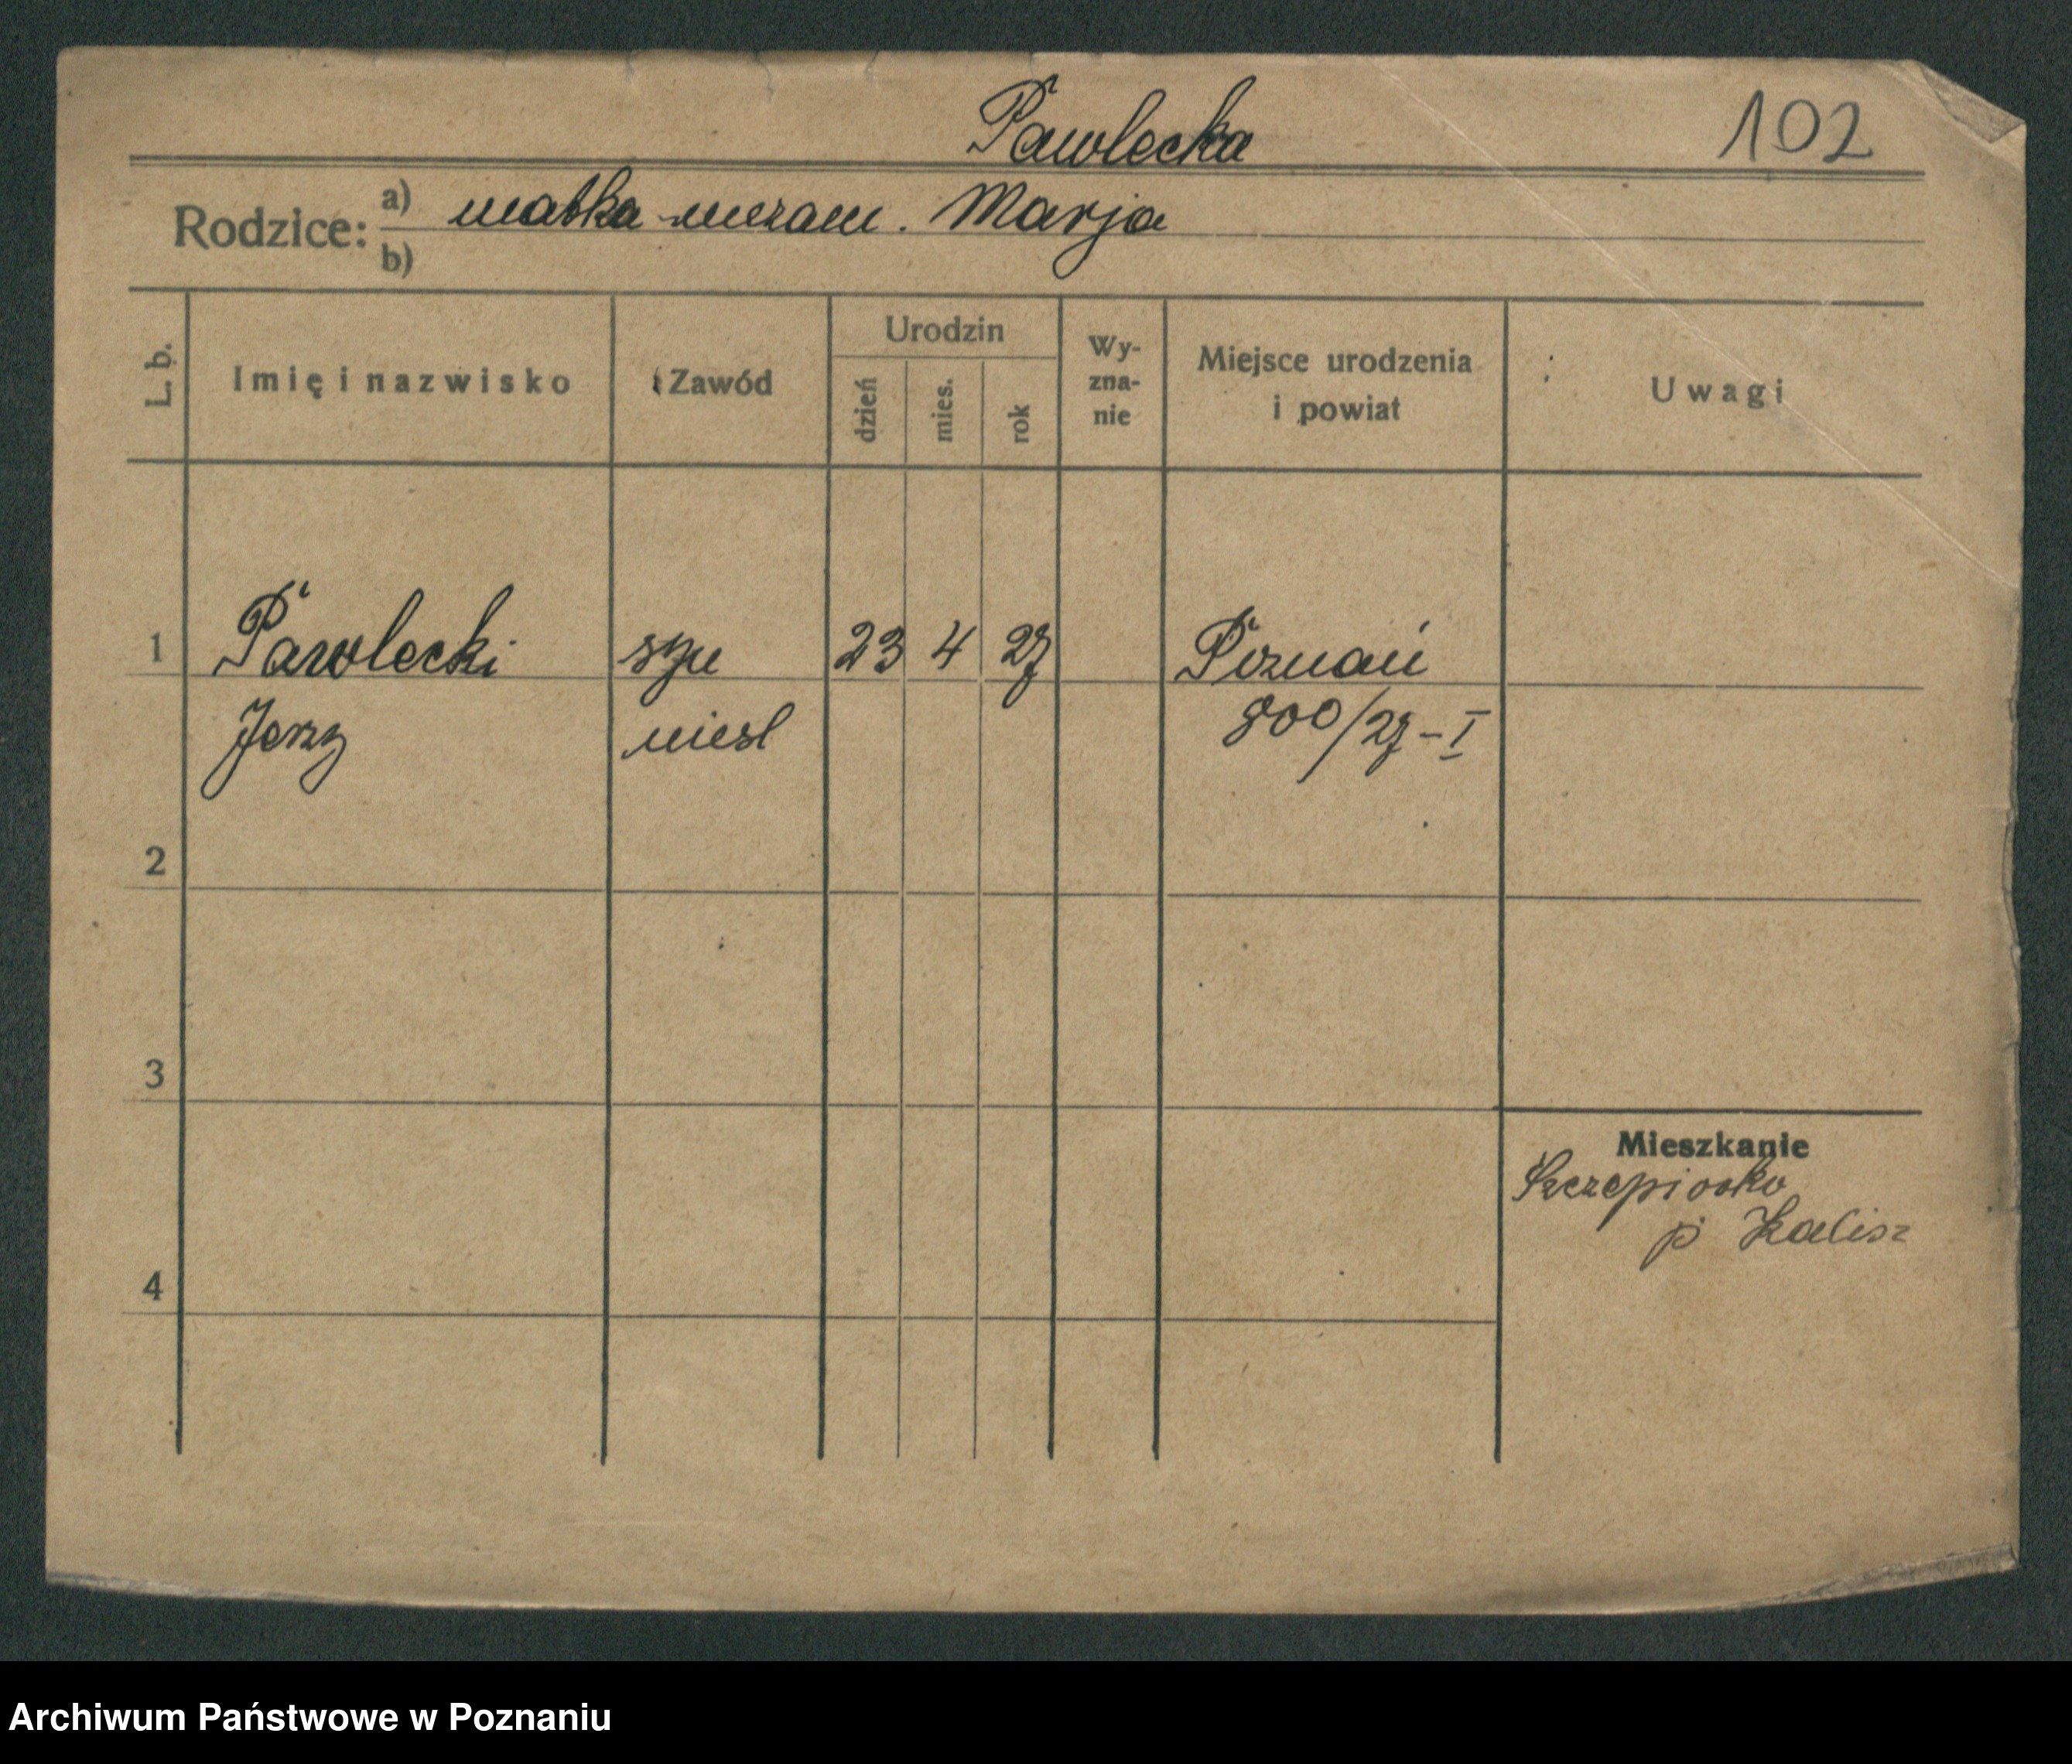 Pawlecka
102
Rodzice: a) matka niezam. Marja
b)
L. b.
Imię i nazwisko
Zawód
Urodzin
dzień
mies.
rok
Wy-
zna-
nie
Miejsce urodzenia
i powiat
Uwagi
1 Pawlecki syn 23 4 27 Poznań
Jerzy nieśl 800/27-I
2
3
Mieszkanie
Szczepiorko
p Kalisz
4
Archiwum Państwowe w Poznaniu